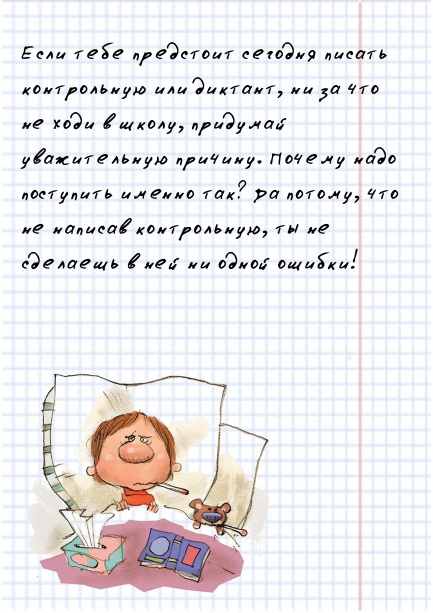 Если тебе предстоит сегодня писать
контрольную или диктант, ни за что
не ходи в школу, придумай
уважительную причину. Почему надо
поступить именно так? Да потому, что
не написав контрольную, ты не
сделаешь в ней ни одной ошибки!